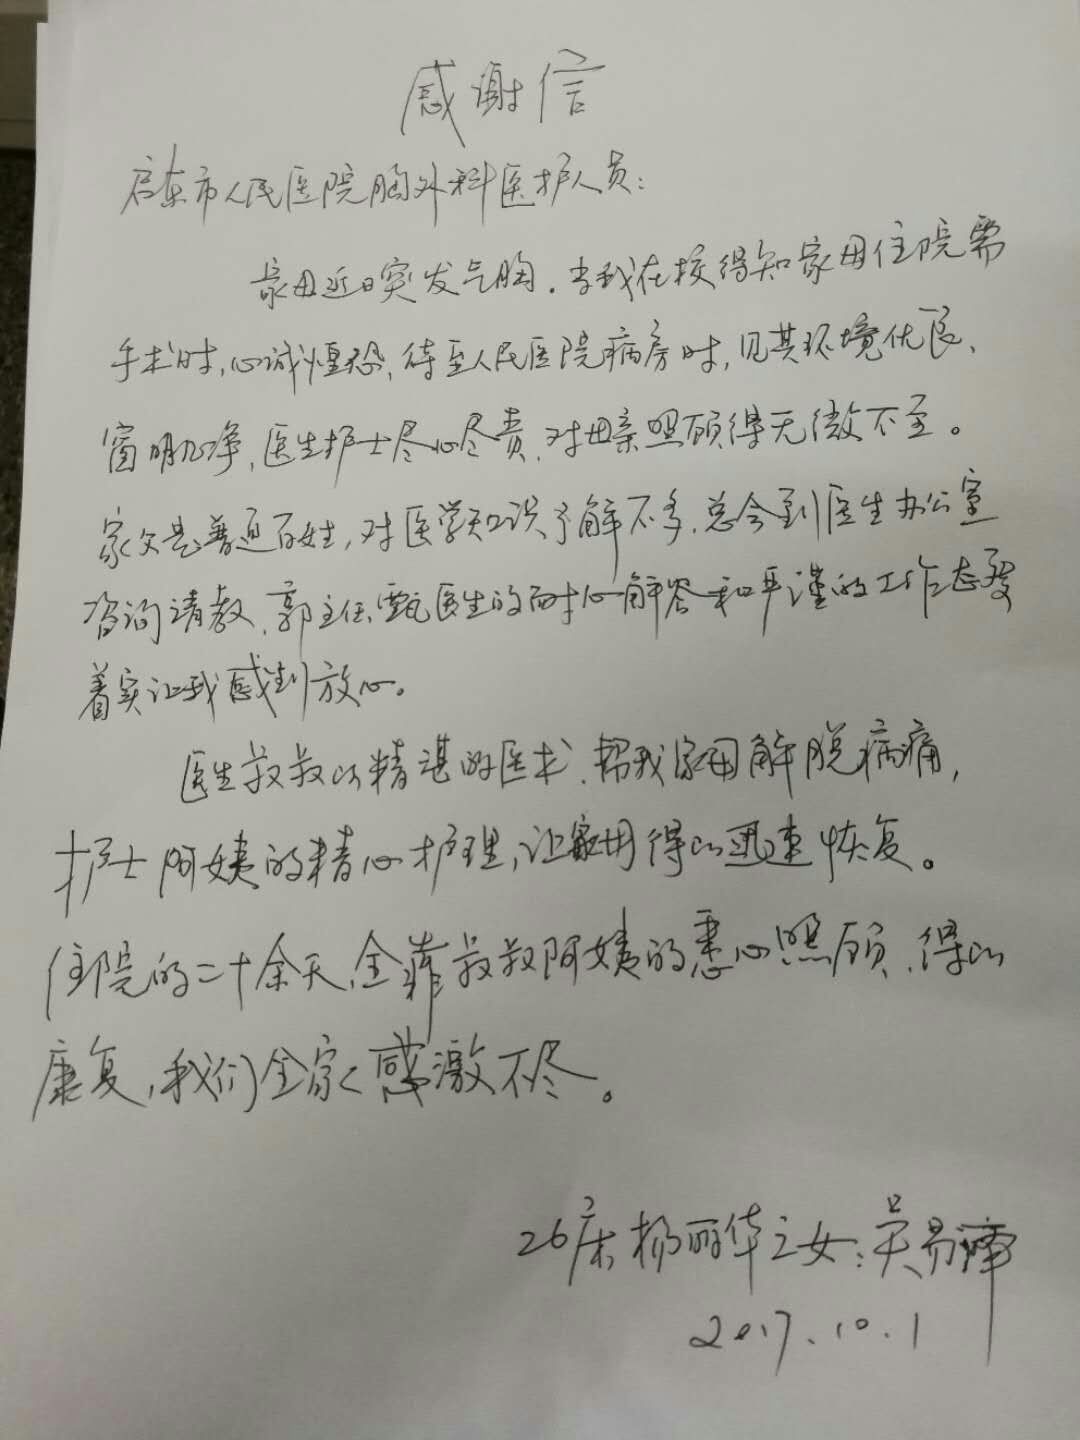 感谢信
启东市人民医院胸外科医护人员：
家母近日突发气胸．当我在校得知家母住院需
手术时，心诚惶恐，待至人民医院病房时，见其环境优良、
窗明几净，医生护士尽心尽责，对母亲照顾得无微不至。
家父是普通百姓，对医学知识了解不多，总会到医生办公室
咨询请教，郭主任、甄医生的耐心解答和严谨的工作态度
着实让我感到放心。
医生叔叔以精湛的医术，帮我家母解脱病痛，
护士阿姨的精心护理，让家母得以迅速恢复。
住院的二十余天，全靠叔叔阿姨的悉心照顾，得以
康复，我们全家人感激不尽。
26床杨丽华之女：吴易
2017.10.1